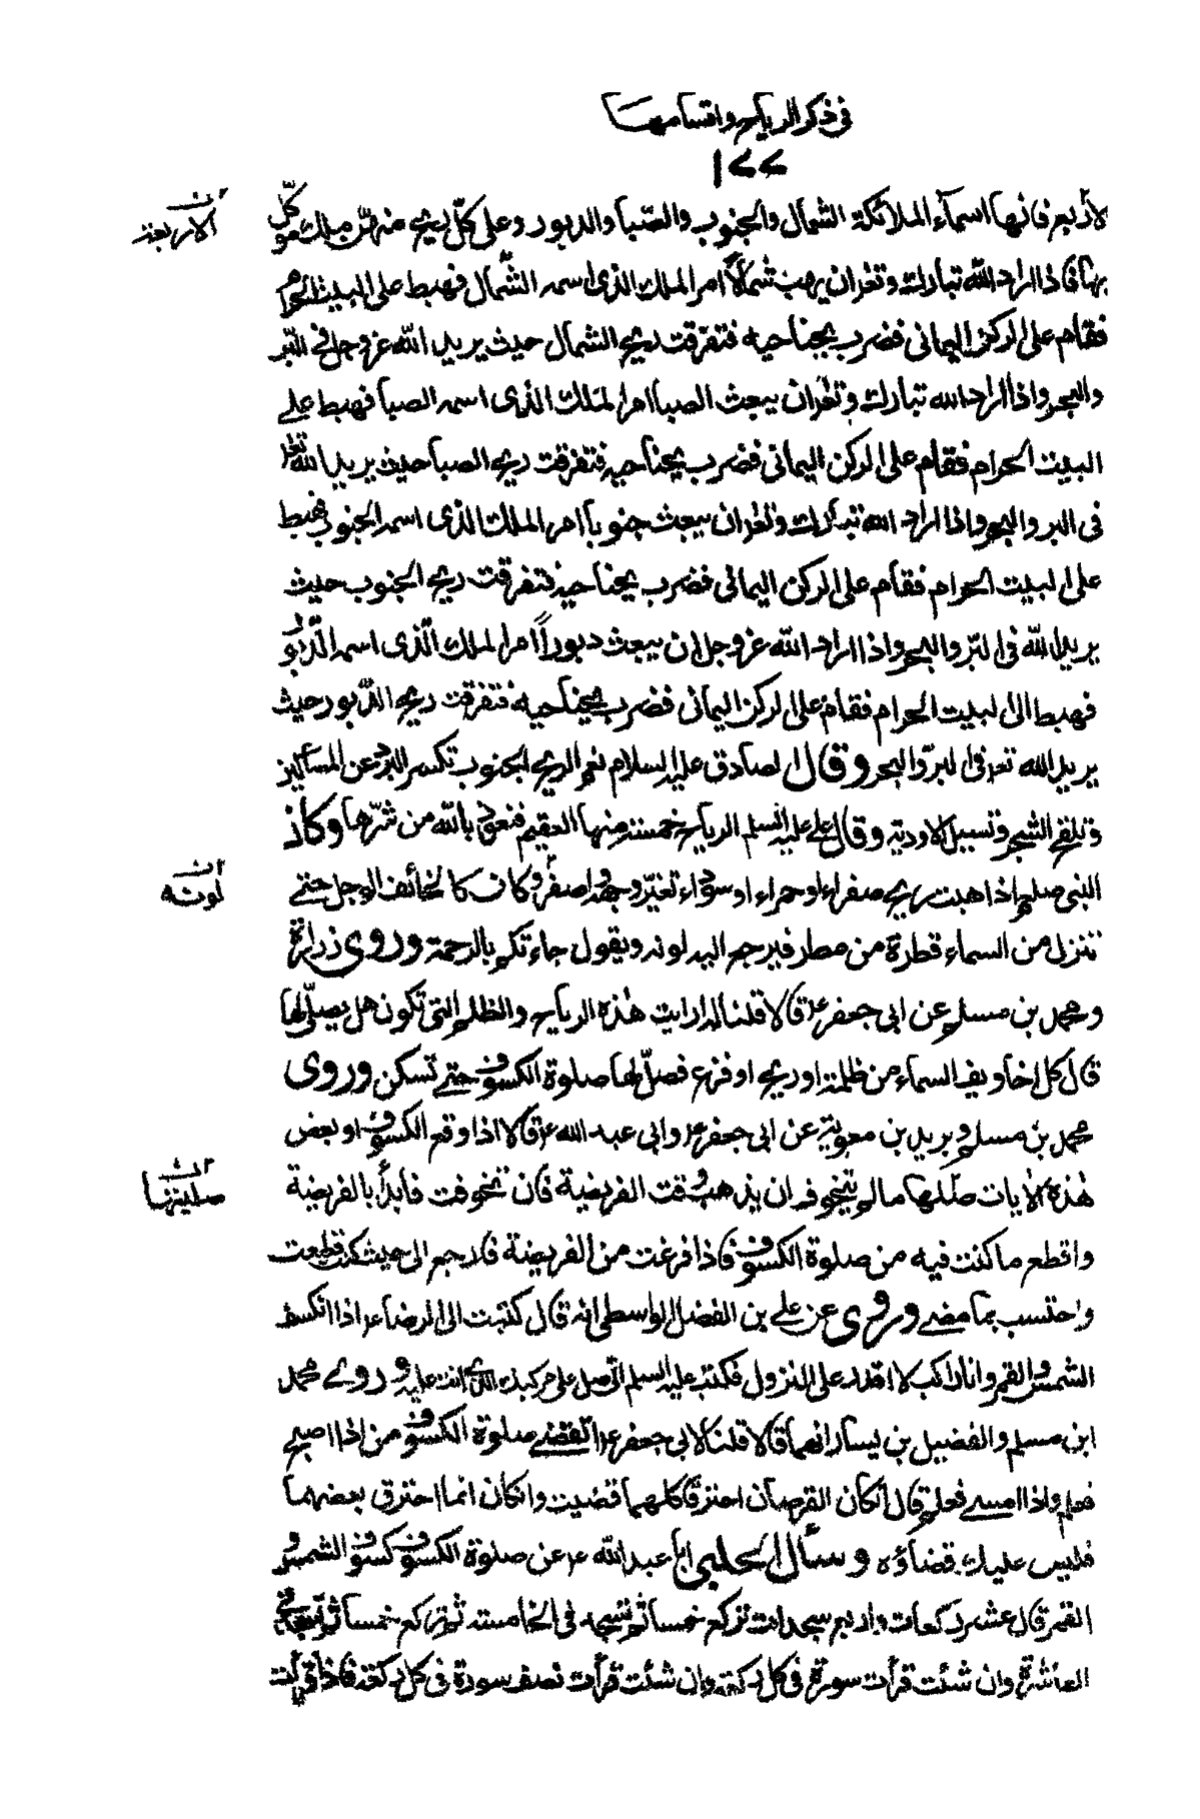 فى ذكر الرياح واقسامها
١٧٧
لأربع فانها اسماء الملائكة الشمال والجنوب والصّبا والدبور وعلى كلّ ريح منهنّ ملك موكّل
الاربعة
بها فاذا اراد اللّه تبارك وتعالى ان يهب شمالاً امر الملك الذى اسمه الشّمال فهبط على البيت الحرام
فقام على الركن اليمانى فضرب بجناحيه فتفرقت ريح الشمال حيث يريد اللّه عز وجل فى البّر
والبحر واذا اراد الله تبارك وتعالى ان يبعث الصبا امر الملك الّذى اسمه الصبا فهبط على
البيت الحرام فقام على الركن اليمانى فضرب بجناحيه فتفرقت ريح الصبا حيث يريد اللّه تعالى
فى البر والبحر واذا اراد الله تبارك وتعالى ان يبعث جنوباً امر الملك الذى اسمه الجنوب فهبط
على البيت الحرام فقام على الركن اليمانى فضرب بجناحيه فتفرقت ريح الجنوب حيث
يريد اللّه فى البّر والبحر واذا اراد اللّه عز وجل ان يبعث دبوراً امر الملك الّذى اسمه الدّبور
فهبط الى البيت الحرام فقام على الركن اليمانى فضرب بجناحيه فتفرقت ريح الدّبور حيث
يريد الله تعالى فى البرّ والبحر وقال الصادق عليه السلام نعم الريح الجنوب تكسر البرد عن المساكين
وتلقح الشجر وتسيل الاودية وقال على عليه السلم الرياح خمسة منها العقيم فنعوذ باللّه من شرّها وكان
النبى صلعم اذا هبت ريح صفراء او حمراء او سوداء تغيّر وجهه اصفرّ وكان كالخائف الوجل حتى
لونه
تنزل من السماء قطرة من مطر فيرجع اليه لونه ويقول جاءتكم بالرحمة وروى زرارة
ومحمد بن مسلم عن ابى جعفر ع قالا قلنا له ارايت هذه الرياح والظلم التى تكون هل يصلّى لها
قال كل اخاويف السماء من ظلمة او ريح او فزع فصلّ لها صلوة الكسوف حتى تسكن وروى
محمد بن مسلم وبريد بن معوية عن ابى جعفر ع وابى عبد الله ع قالا اذا وقع الكسوف او بعض
هذه الايات صلّها ما لم تتخوف ان يذهب وقت الفريضة فان تخوفت فابدأ بالفريضة
صليتها
واقطع ما كنت فيه من صلوة الكسوف فاذا فرغت من الفريضة فارجع الى حيث كنت قطعت
واحتسب بما مضى وروى عن على بن الفضل الواسطى انه قال كتبت الى الرضا ع اذا انكسف
الشمس والقمر وانا راكب لا اقدر على النزول فكتب عليه السلم الىّ صل على مركبك الذى انت عليه وروى محمد
ابن مسلم والفضيل بن يسار انهما قالا قلنا لابى جعفر ع اتقضى صلوة الكسوف من اذا اصبح
فعلم واذا امسى فعلم قال ان كان القرصان احترقا كلهما قضيت وان كان انما احترق بعضهما
فليس عليك قضاؤه وسأل الحلبى ابا عبد اللّه ع عن صلوة الكسوف كسوف الشمس و
القمر قال عشر ركعات واربع سجدات تركع خمسا ثم تسجد فى الخامسة ثم تركع خمسا ثم تسجد فى
العاشرة وان شئت قرأت سورة فى كل ركعة وان شئت قرأت نصف سورة فى كل ركعة فاذا قرأت